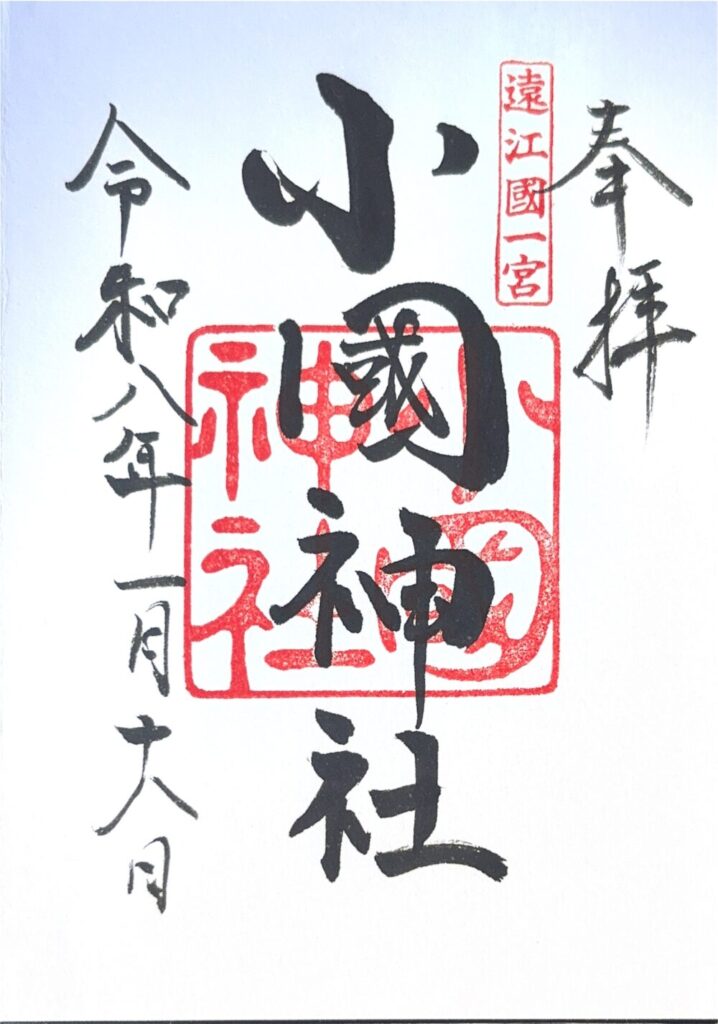 奉拝
遠江國一宮
小國神社
小國神社
令和八年一月十八日